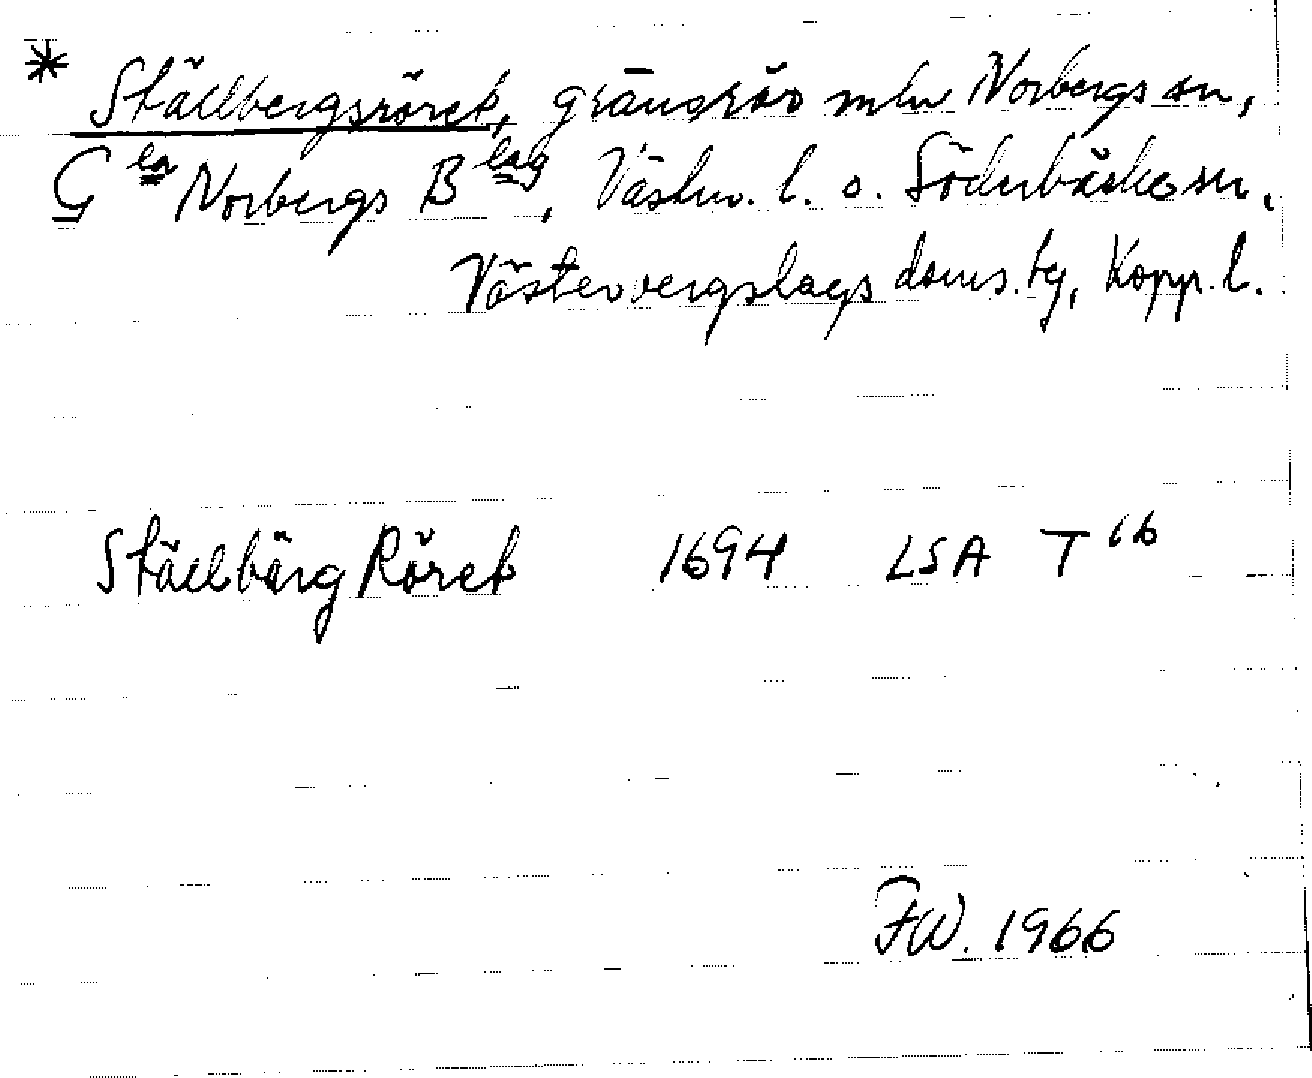 * Ställbergsröret, gränsrör mln Norbergs sn,
Gla Norbergs Blag, Västm. l. o. Söderbärke sn.
Västerbergslags doms. tg, Kopp. l.
Ställbärg Röret 1694 LSA T 16
FW. 1966